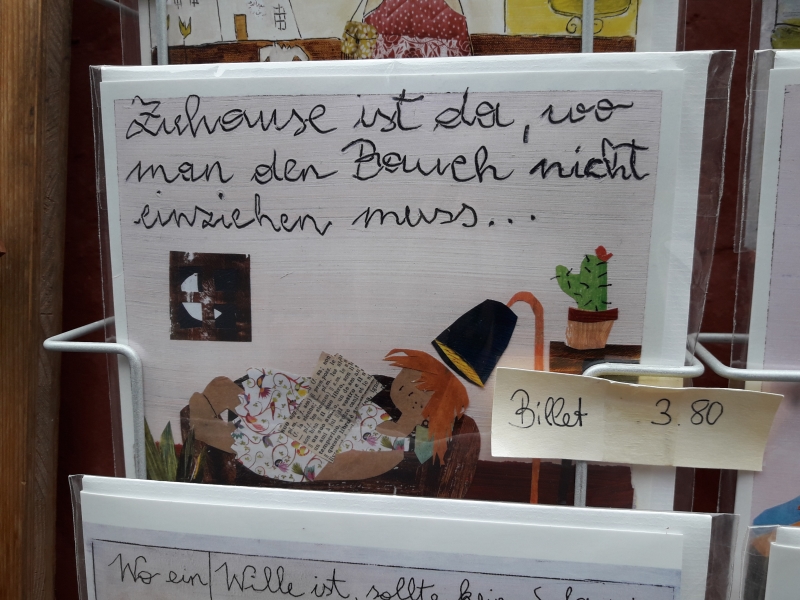 Zuhause ist da, wo
man den Bauch nicht
einziehen muss...
Billet 3.80
Wo ein Wille ist, sollte kein